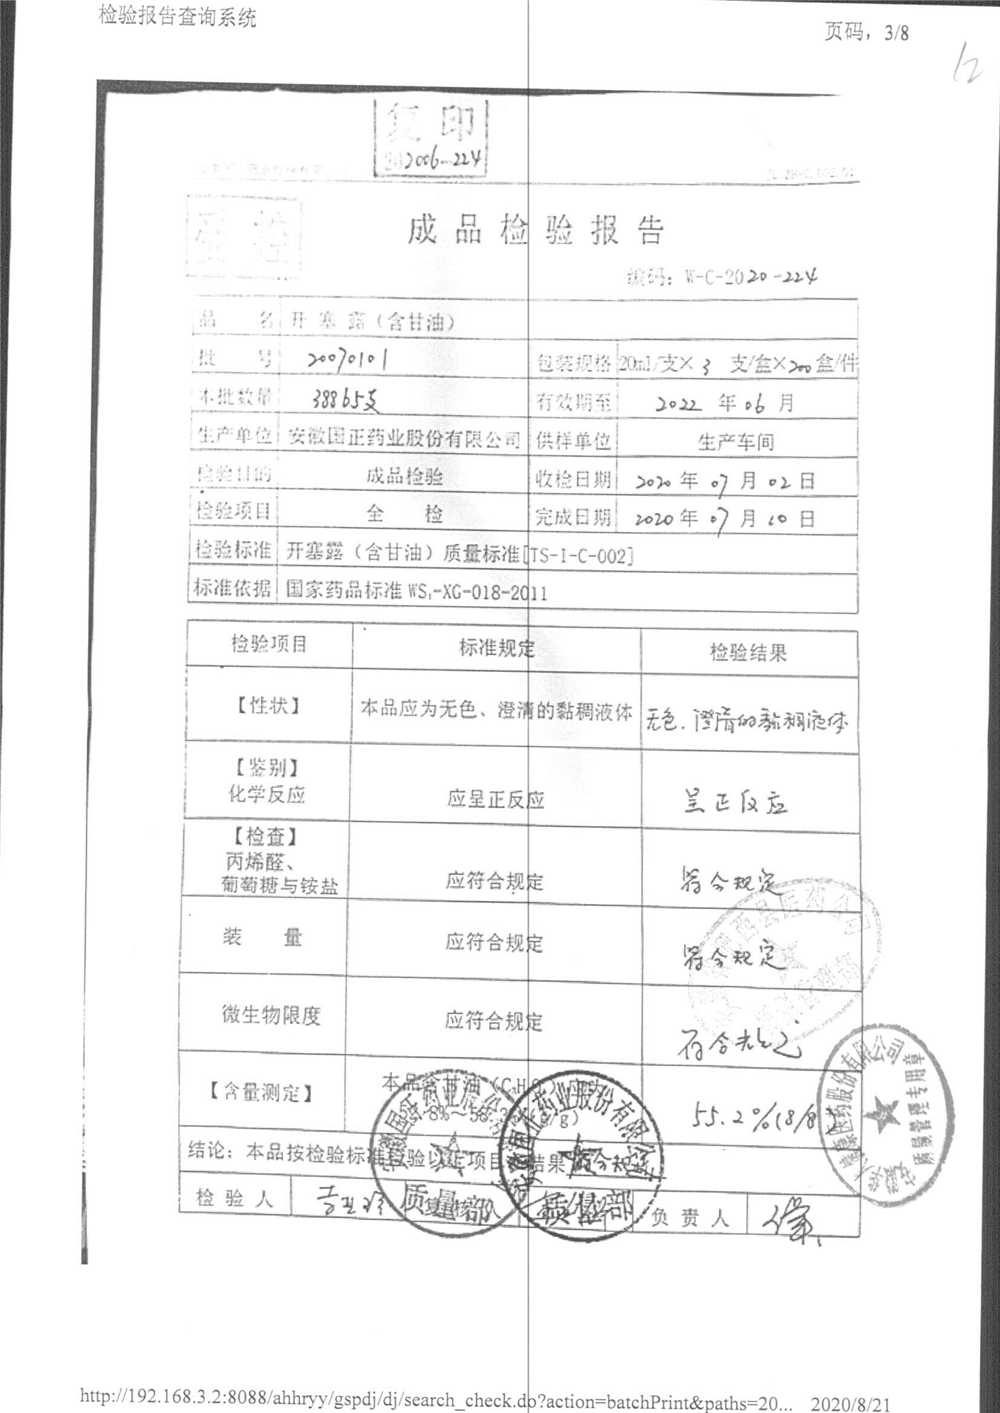 检验报告查询系统
页码，3/8
12
复印
2006-224
成品检验报告
编码：W-C-2020-224
品 名 开塞露（含甘油）
批 号 20070101 包装规格 20ml/支×3 支/盒×200盒/件
本批数量 38865支 有效期至 2022 年 06 月
生产单位 安徽国正药业股份有限公司 供样单位 生产车间
检验目的 成品检验 收检日期 2020 年 07 月 02 日
检验项目 全 检 完成日期 2020 年 07 月 10 日
检验标准 开塞露（含甘油）质量标准[TS-I-C-002]
标准依据 国家药品标准 WS₁-XG-018-2011
检验项目 标准规定 检验结果
【性状】 本品应为无色、澄清的黏稠液体 无色、澄清的黏稠液体
【鉴别】
化学反应 应呈正反应 呈正反应
【检查】
丙烯醛、
葡萄糖与铵盐 应符合规定 符合规定
装 量 应符合规定 符合规定
微生物限度 应符合规定 符合规定
【含量测定】 本品含甘油（C₃H 55.2%(g/g)
结论：本品按检验标准检验以上项目 结果符合规定
检 验 人 负 责 人
安徽国正药业股份有限公司
质量部
安徽国正药业股份有限公司
质量部
医药股份有限公司
质量管理专用章
http://192.168.3.2:8088/ahhryy/gspdj/dj/search_check.do?action=batchPrint&paths=20... 2020/8/21